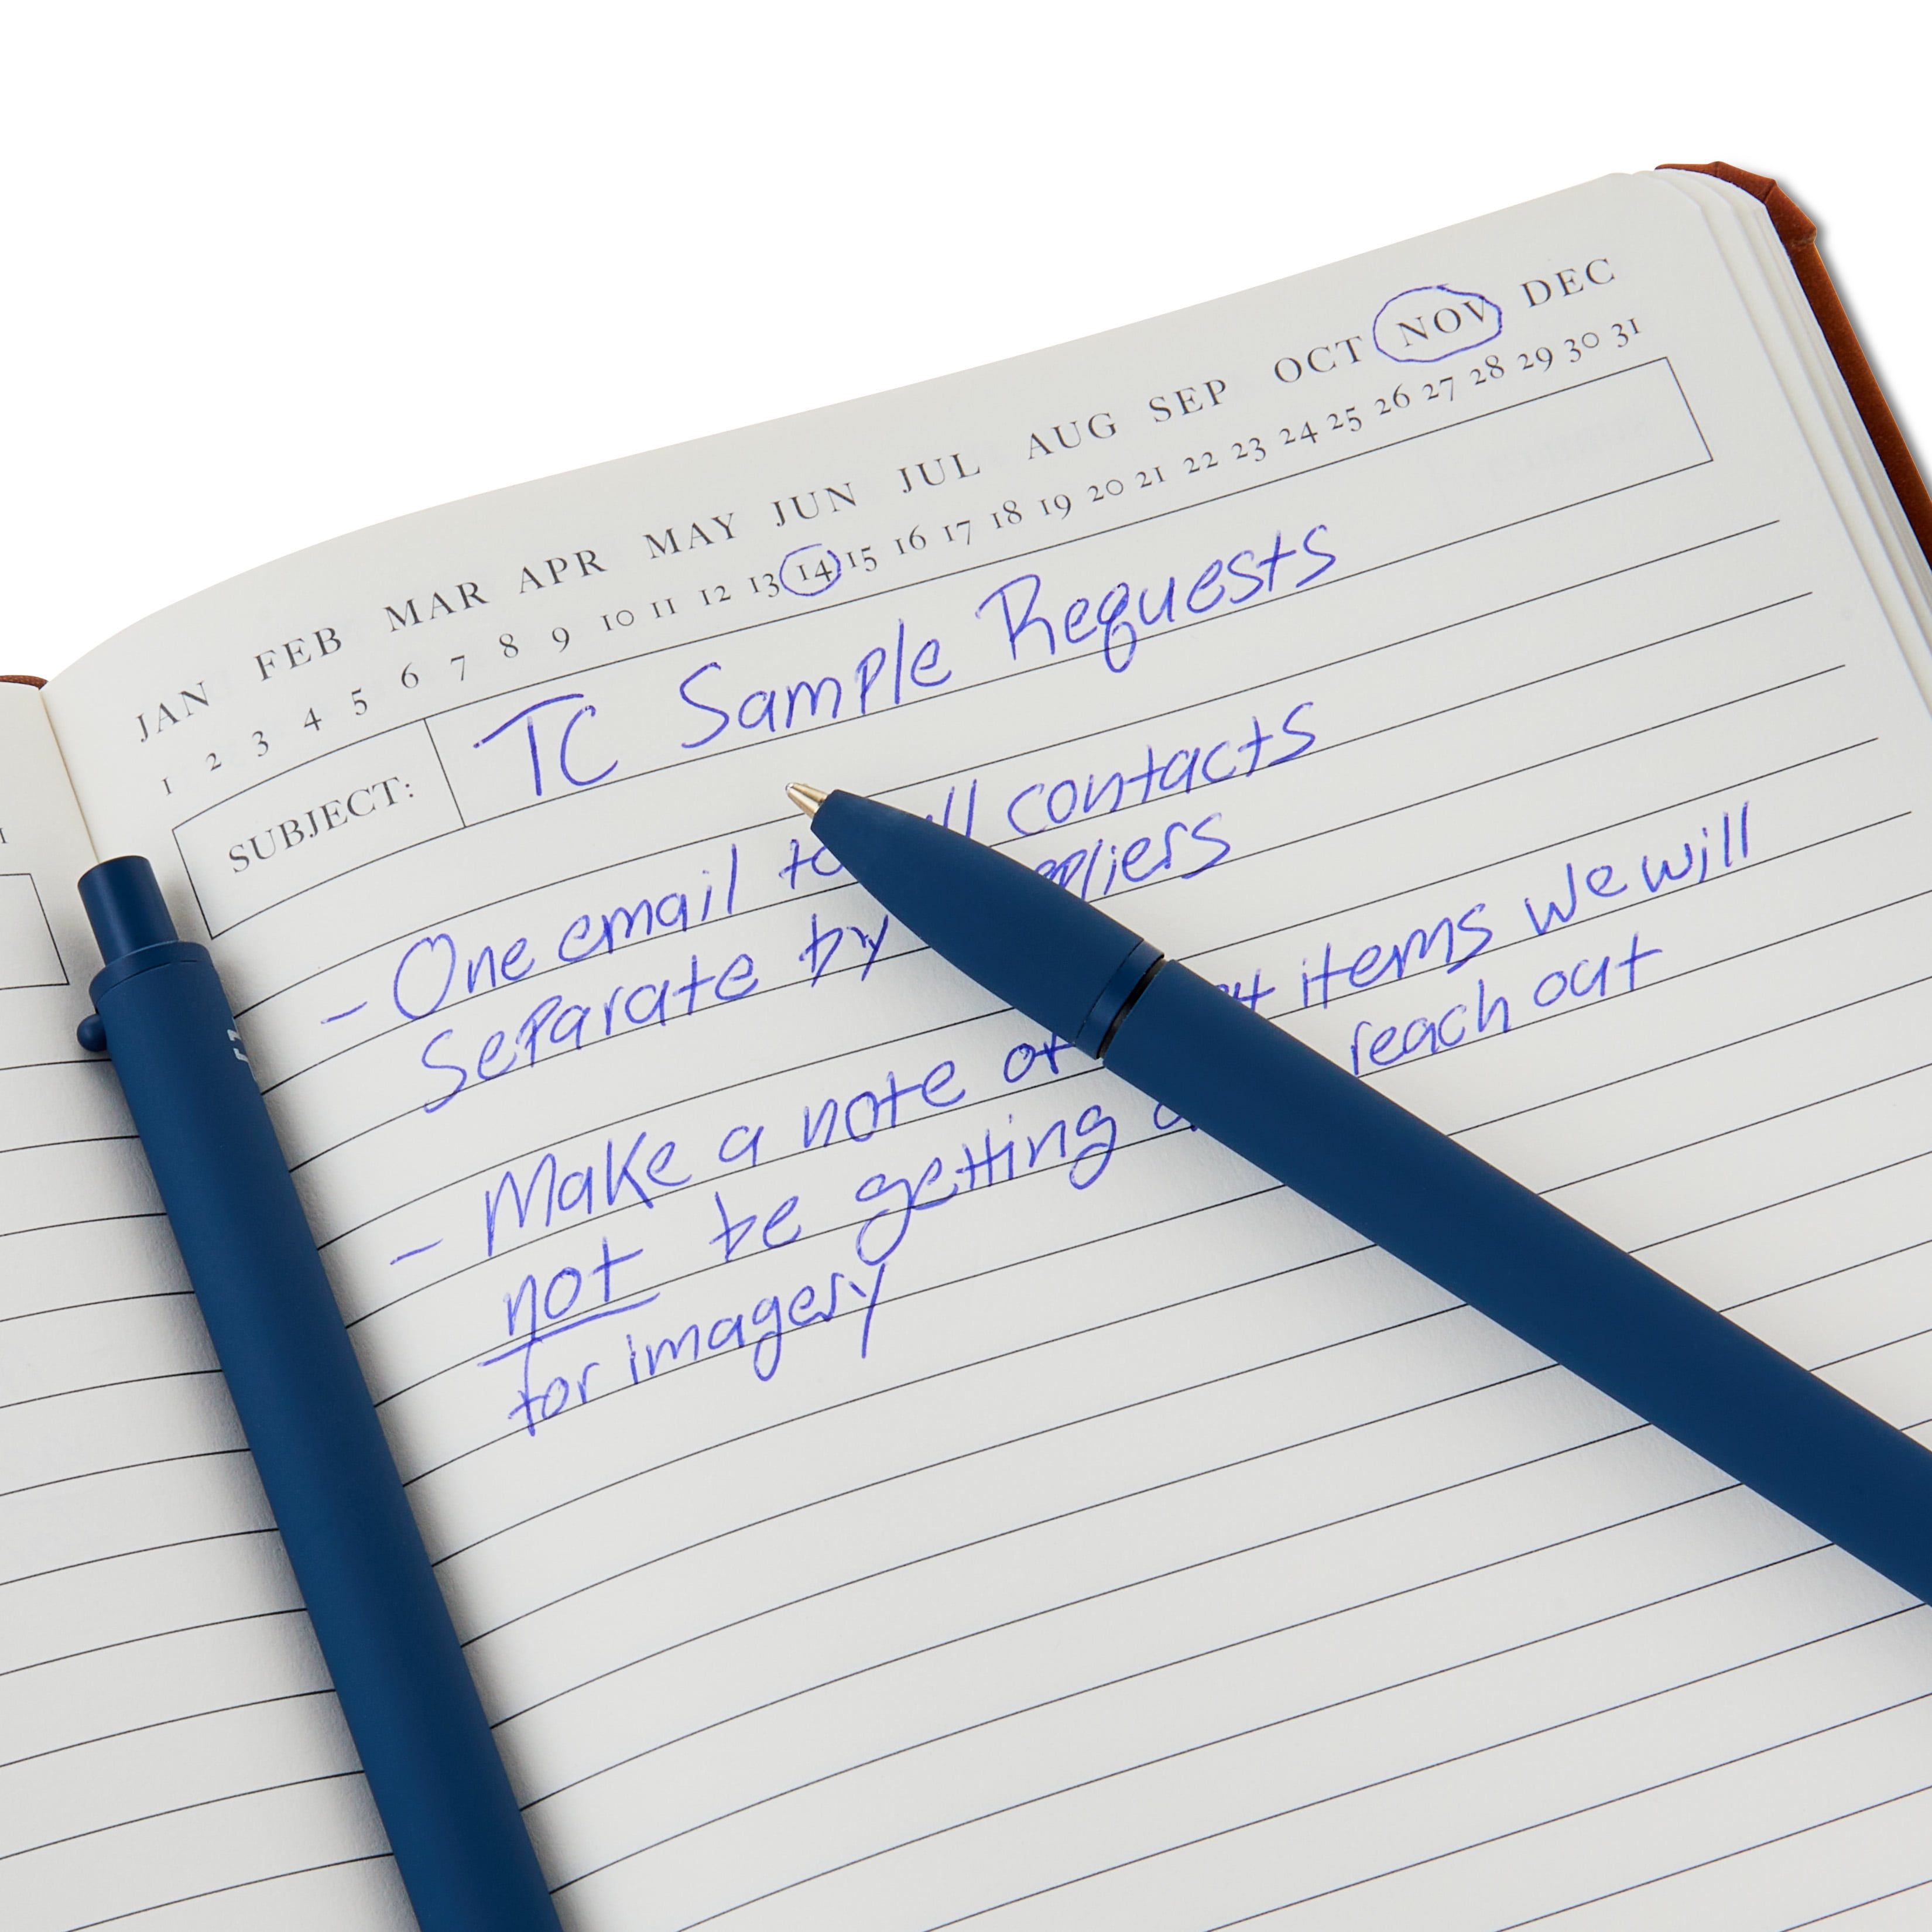 JAN FEB MAR APR MAY JUN JUL AUG SEP OCT NOV DEC
1 2 3 4 5 6 7 8 9 10 11 12 13 14 15 16 17 18 19 20 21 22 23 24 25 26 27 28 29 30 31
SUBJECT: TC Sample Requests
- One email to all contacts
Separate by suppliers
- Make a note of items we will
not be getting reach out
for imagery